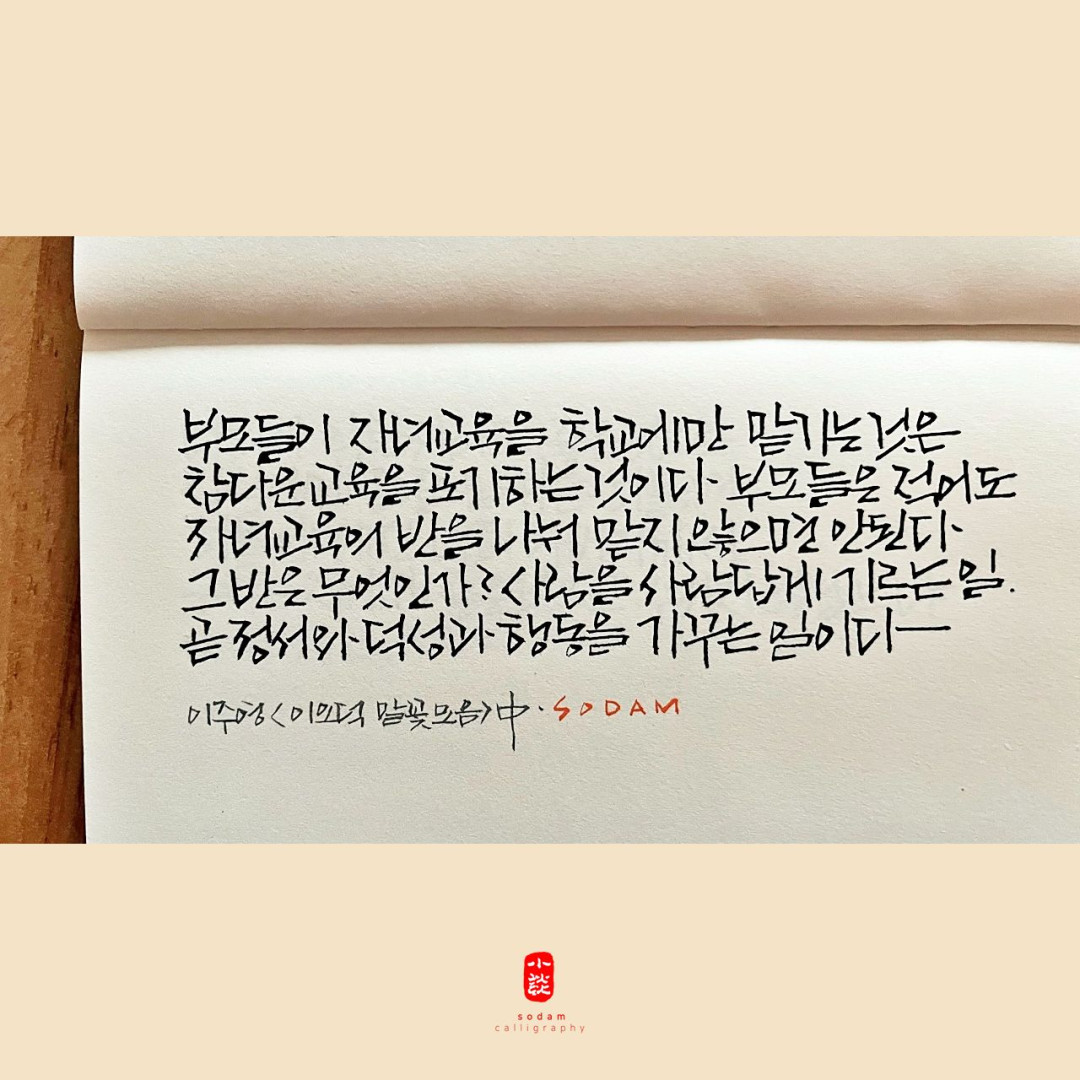 부모들이 자녀교육을 학교에만 맡기는 것은
참다운 교육을 포기하는 것이다. 부모들은 적어도
자녀교육의 반을 나눠 맡지 않으면 안된다.
그 반은 무엇인가? 사람을 사람답게 기르는 일.
곧 정서와 덕성과 행동을 가꾸는 일이다—
이주영 <이오덕 말꽃모음> 中. SODAM
小談
sodam
calligraphy